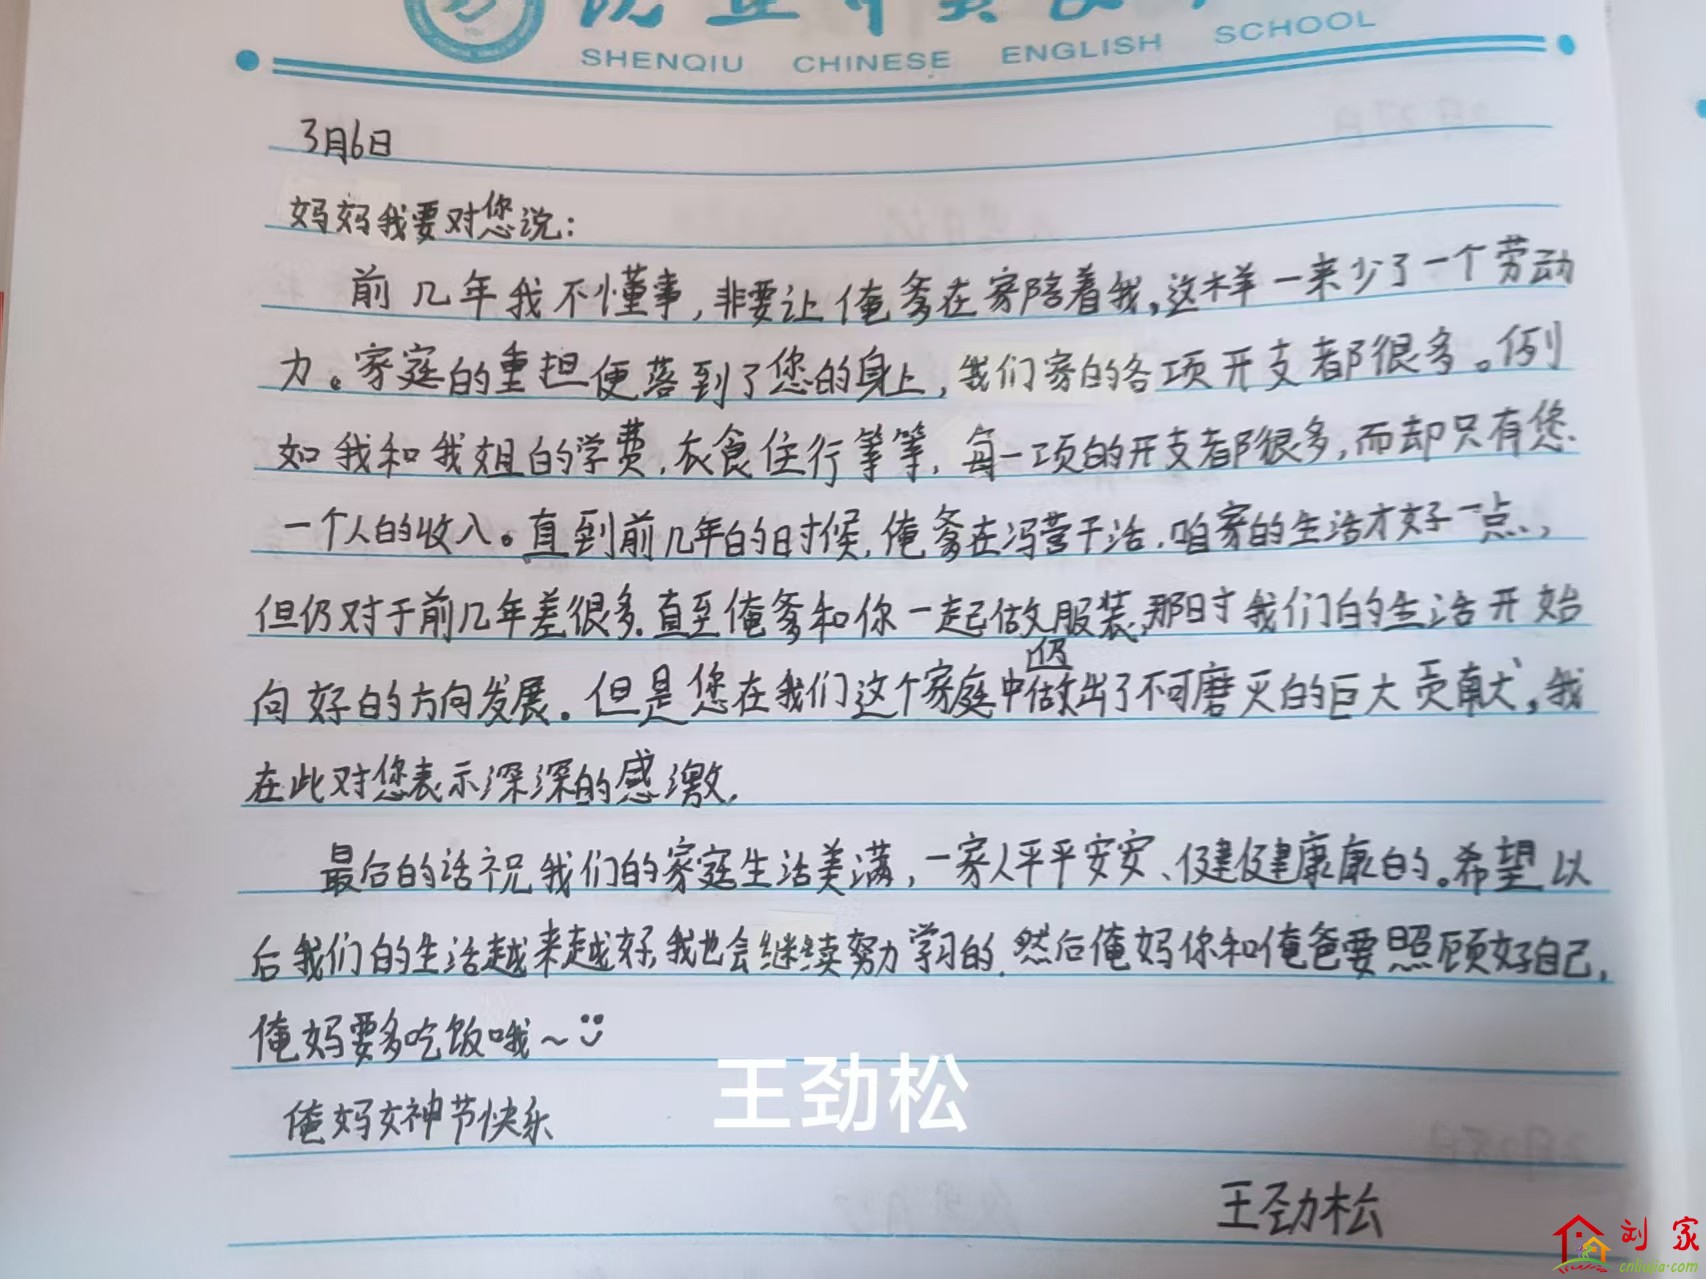 SHENQIU CHINESE ENGLISH SCHOOL
3月6日
妈妈我要对您说:
前几年我不懂事,非要让俺爹在家陪着我,这样一来少了一个劳动
力。家庭的重担便落到了您的身上,我们家的各项开支都很多。例
如我和我姐的学费,衣食住行等等,每一项的开支都很多,而却只有您
一个人的收入。直到前几年的时候,俺爹在冯营干活,咱家的生活才好一点,
但仍对于前几年差很多,直至俺爹和你一起做服装,那时我们的生活开始
向好的方向发展。但是您在我们这个家庭中仍做出了不可磨灭的巨大贡献,我
在此对您表示深深的感激,
最后的话祝我们的家庭生活美满,一家人平平安安、健健康康的。希望以
后我们的生活越来越好,我也会继续努力学习的,然后俺妈你和俺爸要照顾好自己,
俺妈要多吃饭哦~
王劲松
俺妈女神节快乐
王劲松
刘家
cnliujia.com